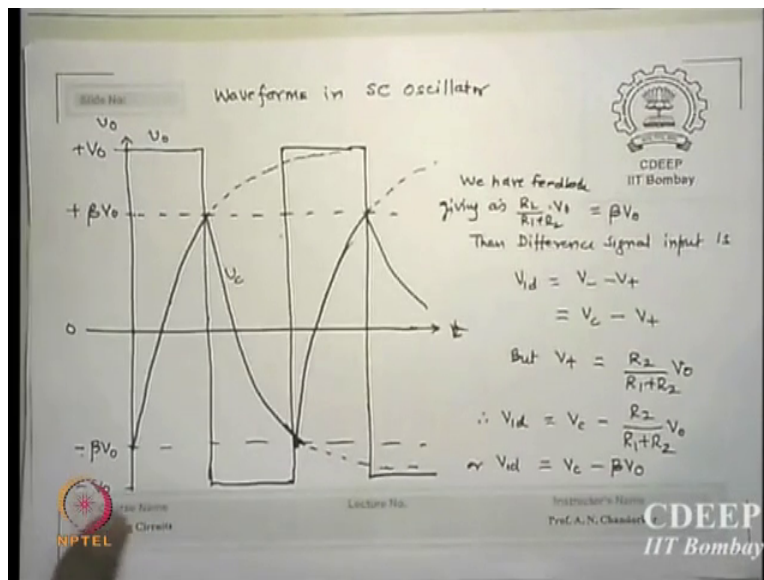 Slide No:
Waveforms in SC oscillator
CDEEP
IIT Bombay
υo
υo
+Vo
+ βVo
υc
0
t
- βVo
We have feedback
giving as R2/(R1+R2) · Vo = βVo
Then Difference signal input is
Vid = V- - V+
= Vc - V+
But V+ = R2/(R1+R2) Vo
∴ Vid = Vc - R2/(R1+R2) Vo
or Vid = Vc - βVo
Name
Circuits
Lecture No.
Instructor's Name
Prof. A. N. Chandorkar
NPTEL
CDEEP
IIT Bombay